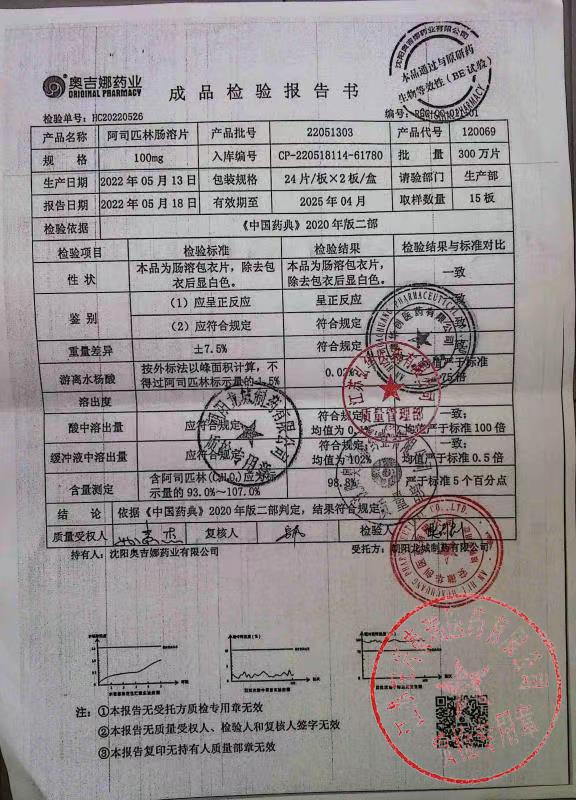 奥吉娜药业
ORIGINAL PHARMACY
成品检验报告书
沈阳奥吉娜药业有限公司
本品通过与原研药
生物等效性（BE试验）
检验单号：HC20220526
编号：
产品名称 阿司匹林肠溶片 产品批号 22051303 产品代号 120069
规 格 100mg 入库编号 CP-220518114-61780 批 量 300万片
生产日期 2022 年 05 月 13 日 包装规格 24 片/板×2 板/盒 请验部门 生产部
报告日期 2022 年 05 月 18 日 有效期至 2025 年 04 月 取样数量 15 板
检验依据 《中国药典》2020 年版二部
检验项目 检验标准 检验结果 检验结果与标准对比
性 状 本品为肠溶包衣片，除去包衣后显白色。 本品为肠溶包衣片，除去包衣后显白色。 一致
鉴 别 （1）应呈正反应 呈正反应 一致
（2）应符合规定 符合规定
重量差异 ±7.5% 符合规定
游离水杨酸 按外标法以峰面积计算，不得过阿司匹林标示量的1.5% 0.02% 均值严于标准75倍
溶出度
酸中溶出量 应符合规定 符合规定 均值为 一致；均值严于标准 100 倍
缓冲液中溶出量 应符合规定 符合规定 均值为 102% 一致；均值严于标准 0.5 倍
含量测定 含阿司匹林(C₉H₈O₄)应为标示量的 93.0%～107.0% 98.8% 严于标准 5 个百分点
结 论 依据《中国药典》2020 年版二部判定，结果符合规定
质量受权人 复核人 检验人
持有人：沈阳奥吉娜药业有限公司 受托方：朝阳龙城制药有限公司
质量管理部
注：①本报告无受托方质检专用章无效
②本报告无质量受权人、检验人和复核人签字无效
③本报告复印无持有人质量部章无效